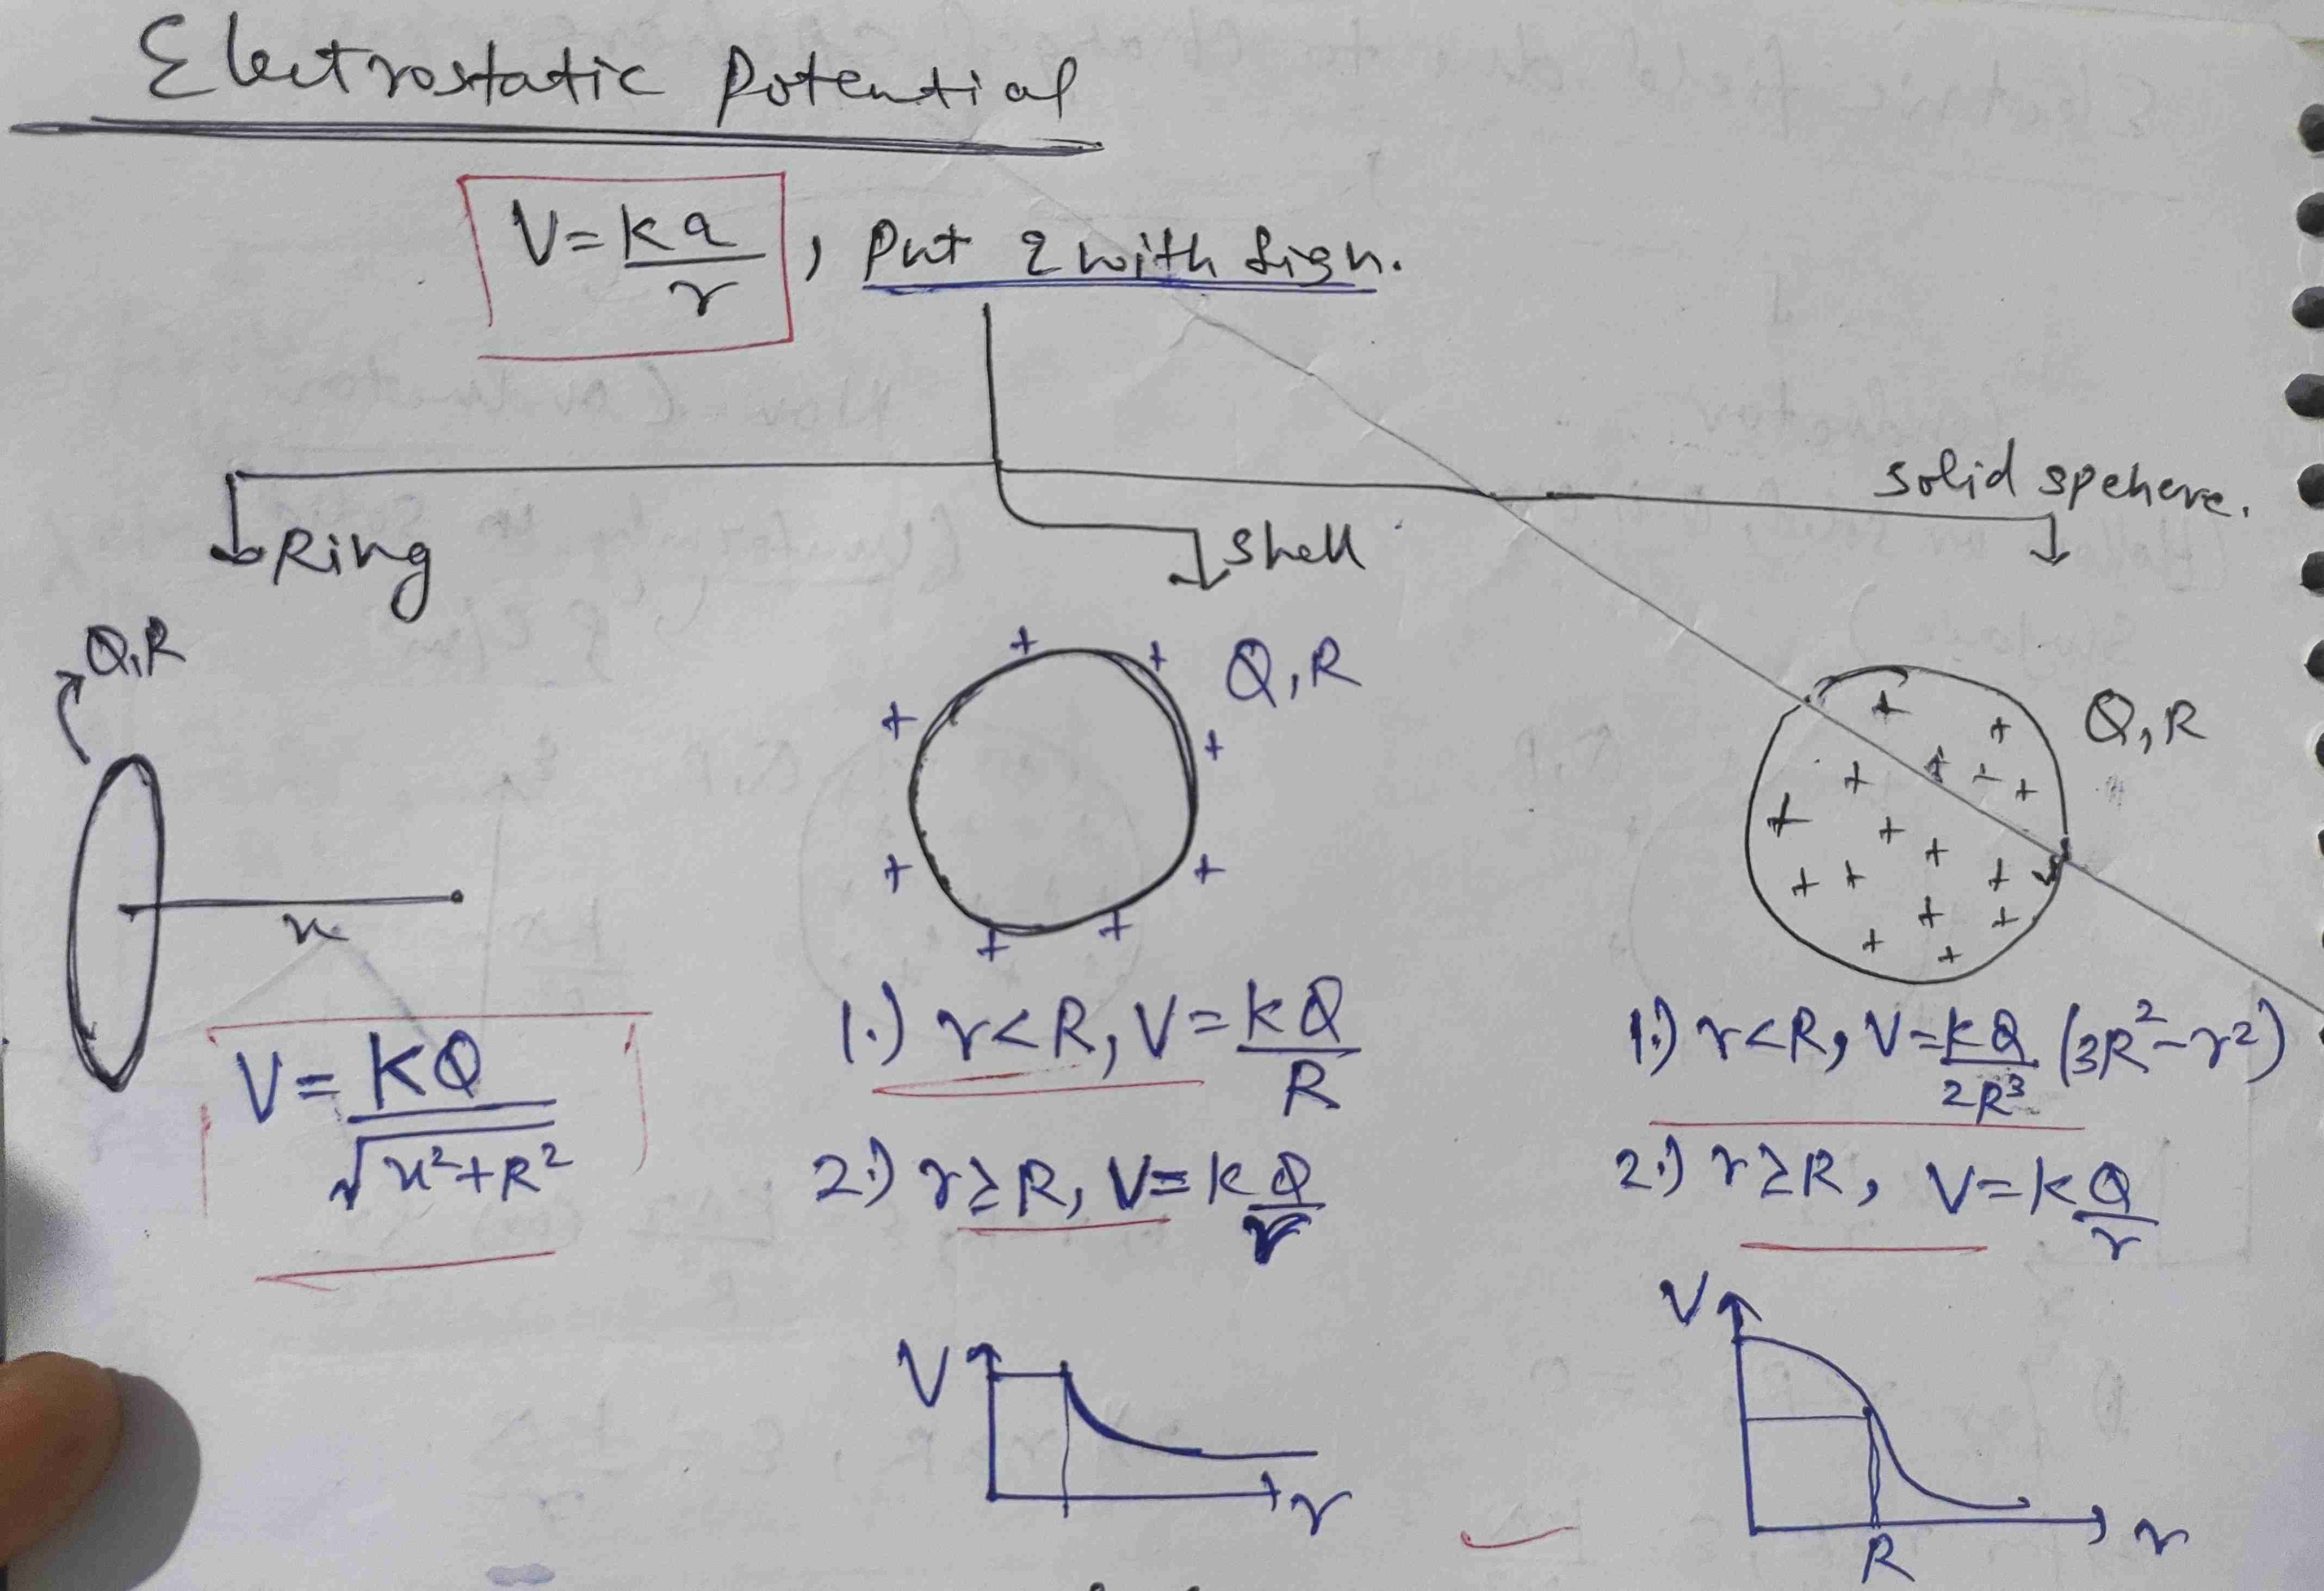 Electrostatic Potential
V = kq/r , Put q with sign.
Ring
Shell
solid spehere.
Q,R
x
V = KQ/√x²+R²
Q,R
1.) r<R, V = kQ/R
2.) r≥R, V = kQ/r
V
r
Q,R
1.) r<R, V = kQ/2R³ (3R²-r²)
2.) r≥R, V = kQ/r
V
R
r